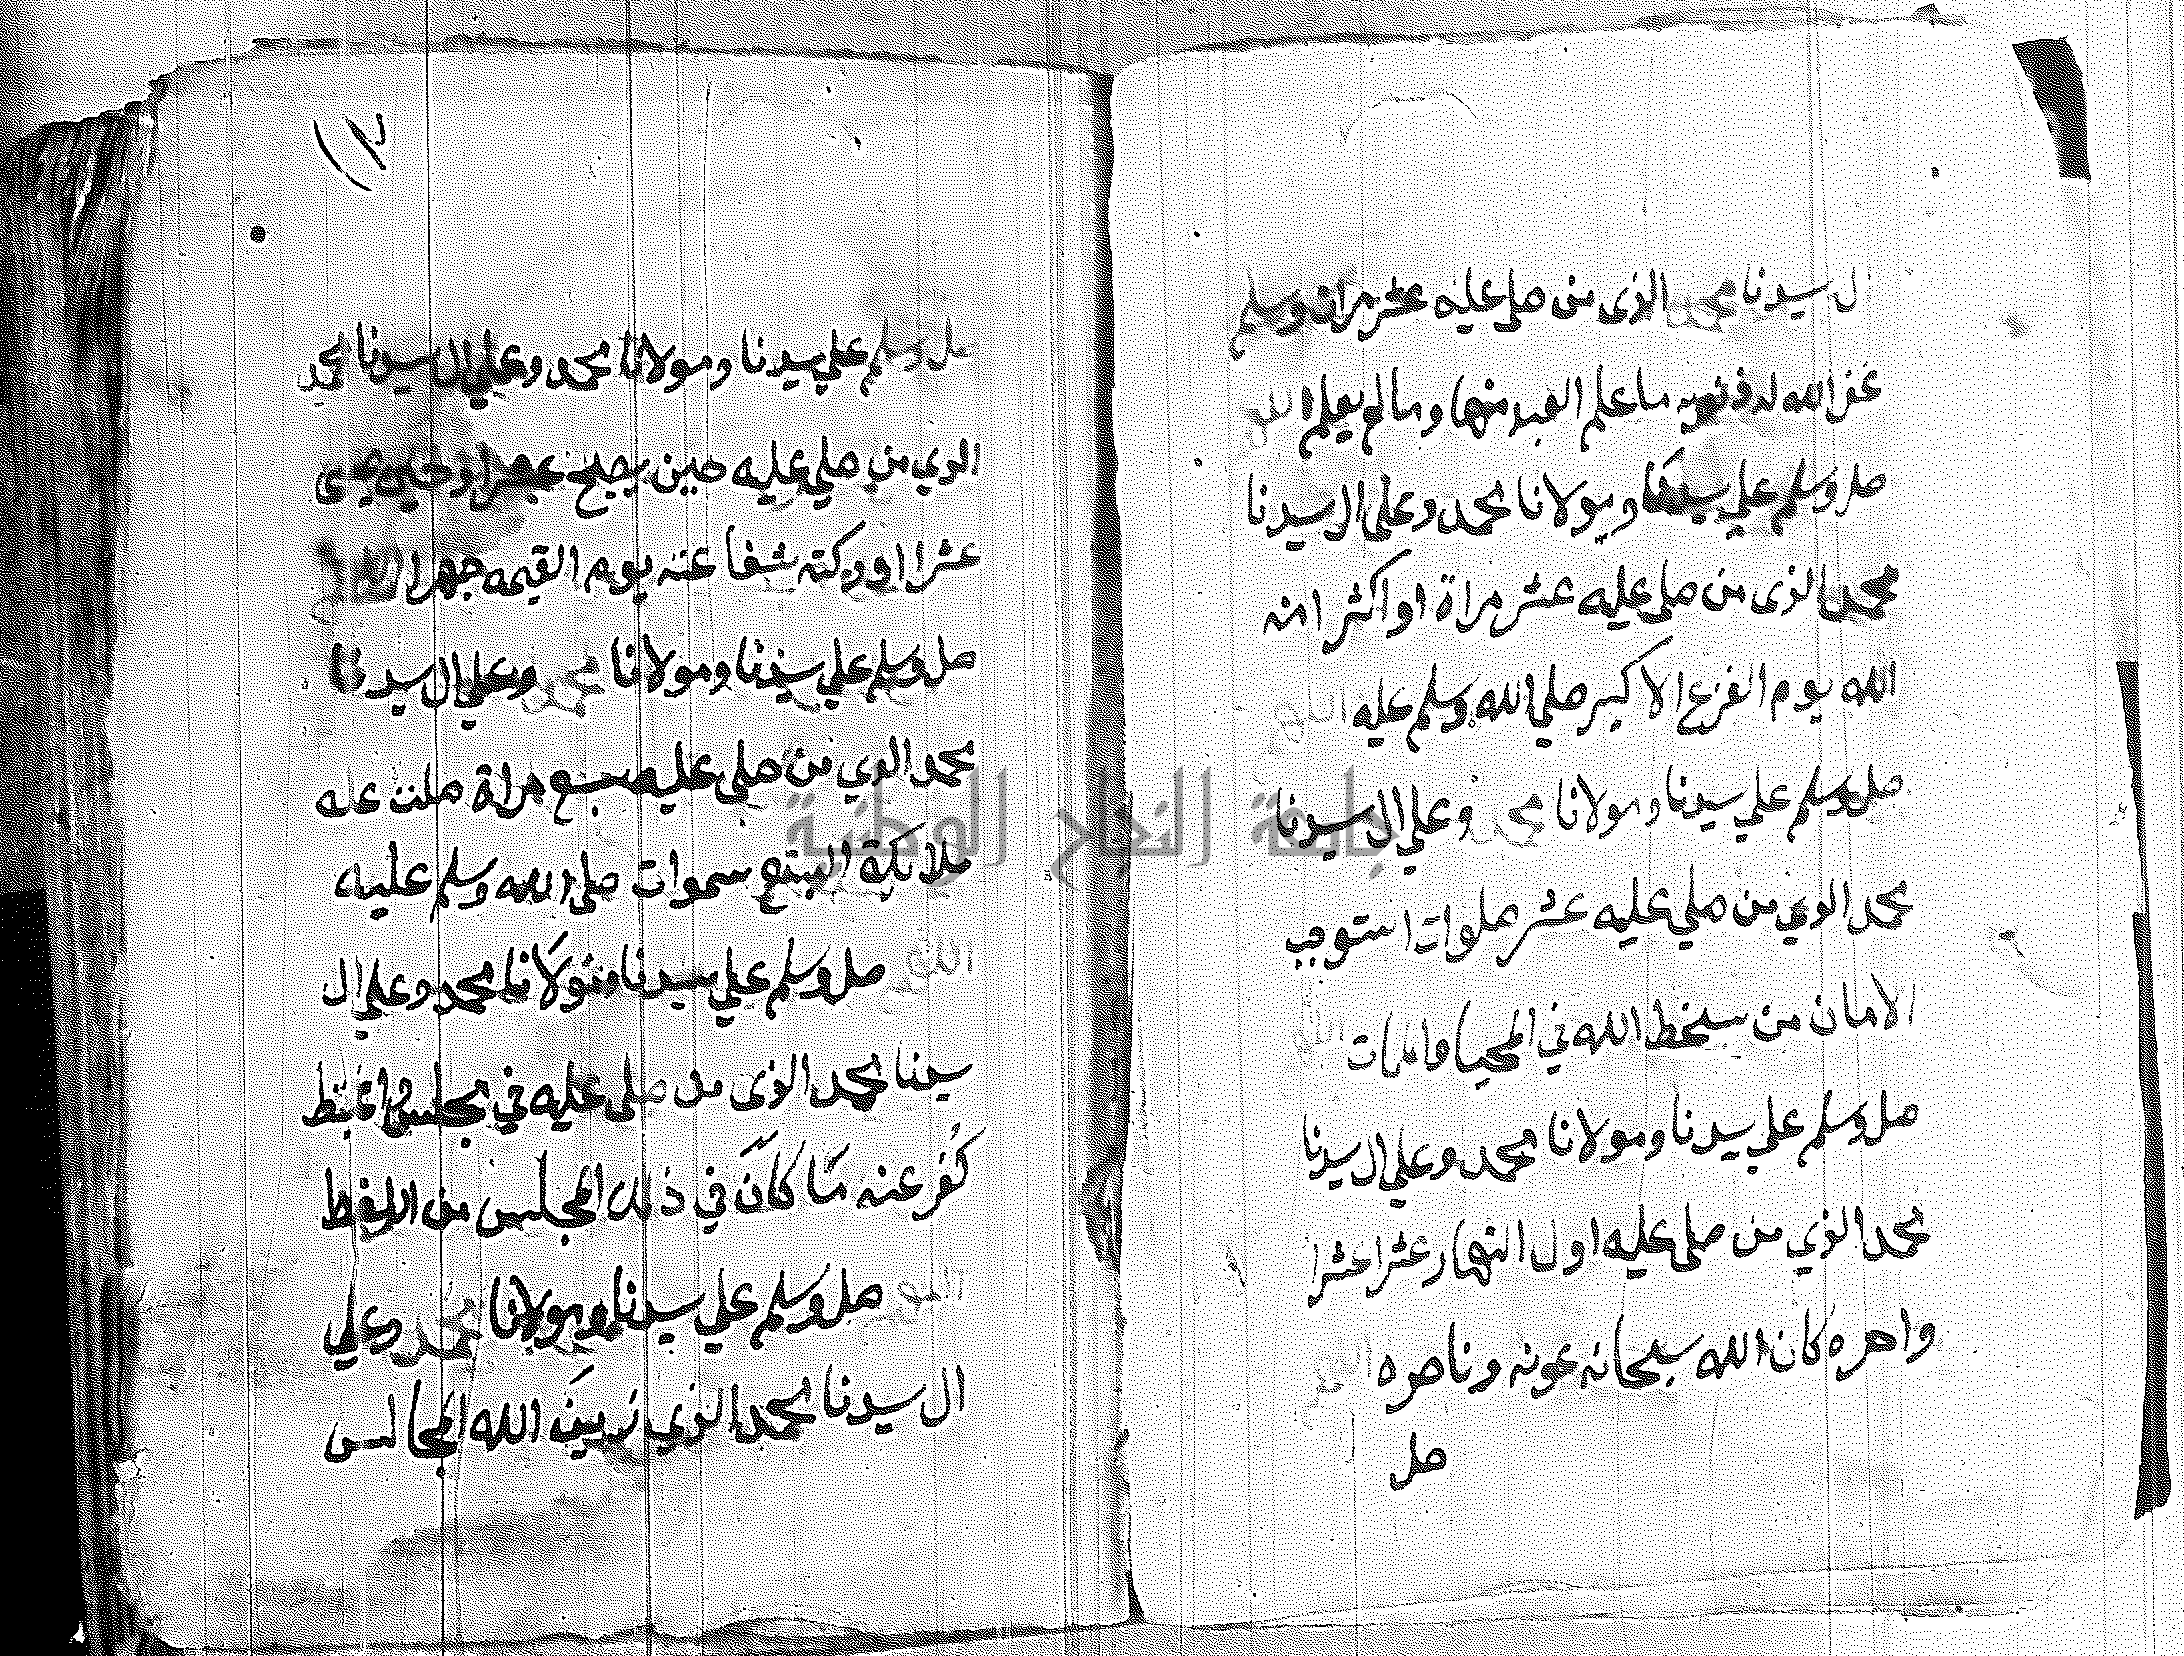 ل سيدنا محمد الذي من صلى عليه عشر مرات وسلم
غفر الله له ذنوبه ما علم العبد منها وما لم يعلم اللهم
صل وسلم علي سيدنا ومولانا محمد وعلى ال سيدنا
محمد الذي من صلى عليه عشر مراة او اكثر امنه
الله يوم الفزع الاكبر صلي الله وسلم عليه اللهم
صل وسلم علي سيدنا ومولانا محمد وعلي ال سيدنا
محمد الذي من صلي عليه عشر صلوات استوجب
الامان من سخط الله في المحيا والممات اللهم
صل وسلم علي سيدنا ومولانا محمد وعلي ال سيدنا
محمد الذي من صلى عليه اول النهار عشرا عشرا
واخره كان الله سبحانه عونه وناصره اللهم
صل
١٢
صل وسلم علي سيدنا ومولانا محمد وعلي ال سيدنا محمد
الذي من صلي عليه حين يصبح عشرا وحين يمسى
عشرا ادركته شفاعته يوم القيمه جهرا اللهم
صل وسلم علي سيدنا ومولانا محمد وعلي ال سيدنا
محمد الذي من صلى عليه سبع مراة صلت عليه
ملائكة السبع سموات صلى الله وسلم عليه
اللهم صل وسلم علي سيدنا ومولانا محمد وعلي ال
سيدنا محمد الذى من صلى عليه في مجلس
كفر عنه ما كان في ذلك المجلس من اللغط
اللهم صل وسلم علي سيدنا ومولانا محمد وعلي
ال سيدنا محمد الذي زين الله المجالس
جامعة النجاح الوطنية